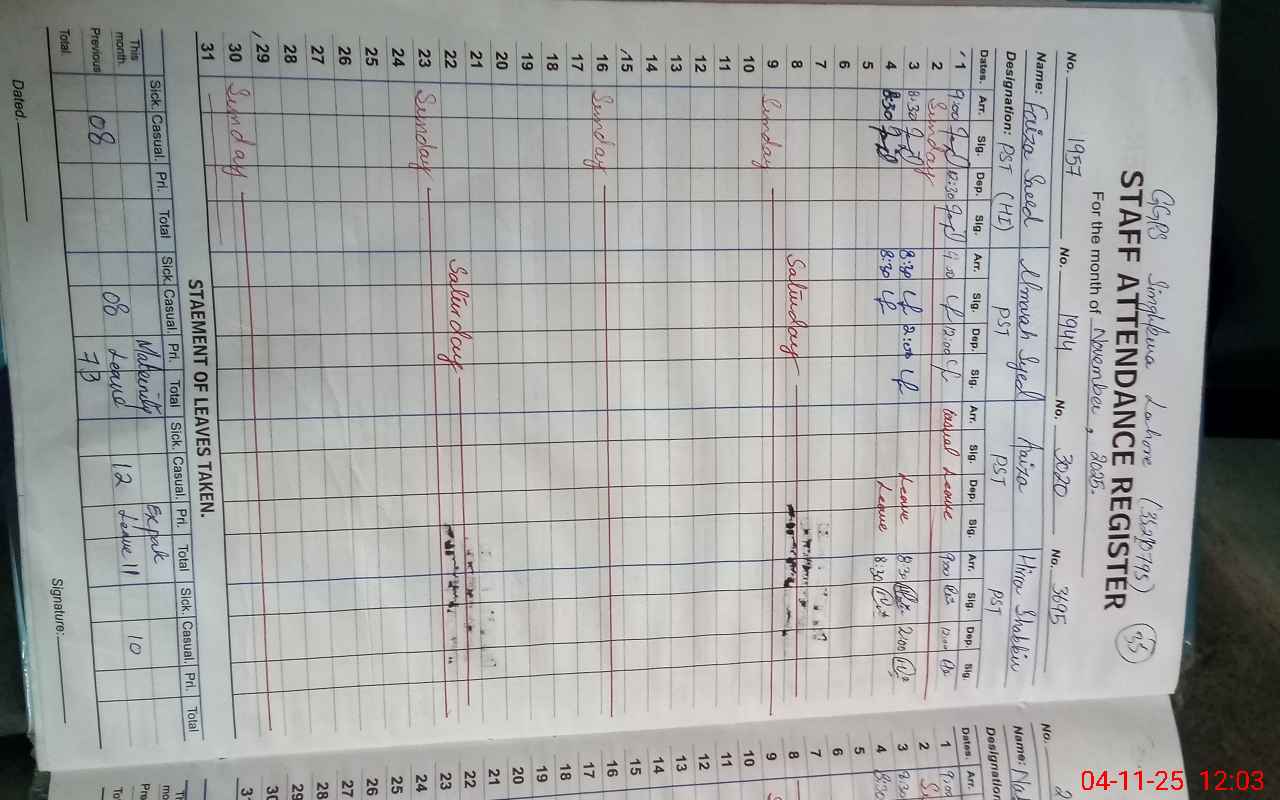 GGPS Singhpura Lahore (35210795) 35
STAFF ATTENDANCE REGISTER
For the month of November, 2025.
No. 1957 No. 1944 No. 3020 No. 3695
Name: Faiza Saeed Almavah Syed Aaiza Hira Shabbir
Designation: PST (HI) PST PST PST
Dates. Arr. Sig. Dep. Sig. Arr. Sig. Dep. Sig. Arr. Sig. Dep. Sig. Arr. Sig. Dep. Sig.
1 9:00 12:30 9:00 12:00 Casual Leave 9:00 12:00
2 Sunday
3 8:30 8:30 2:00 Leave 8:30 2:00
4 8:30 8:30 Leave 8:30
5
6
7
8 Saturday
9 Sunday
10
11
12
13
14
15
16 Sunday
17
18
19
20
21
22 Saturday
23 Sunday
24
25
26
27
28
29
30 Sunday
31
STAEMENT OF LEAVES TAKEN.
Sick. Casual. Pri. Total Sick. Casual. Pri. Total Sick. Casual. Pri. Total Sick. Casual. Pri. Total
This month Maternity Leave 08 Expak Leave 11 12 10
Previous 08 73
Total.
Dated. Signature:
No. 2
Name: Na
Designation
Dates. Arr.
1 9:00
2 S
3 8:30
4 8:30
5
6
7
8
9 S
10
11
12
13
14
15
16
17
18
19
20
21
22
23
24
25
26
27
28
29
30
31
04-11-25 12:03